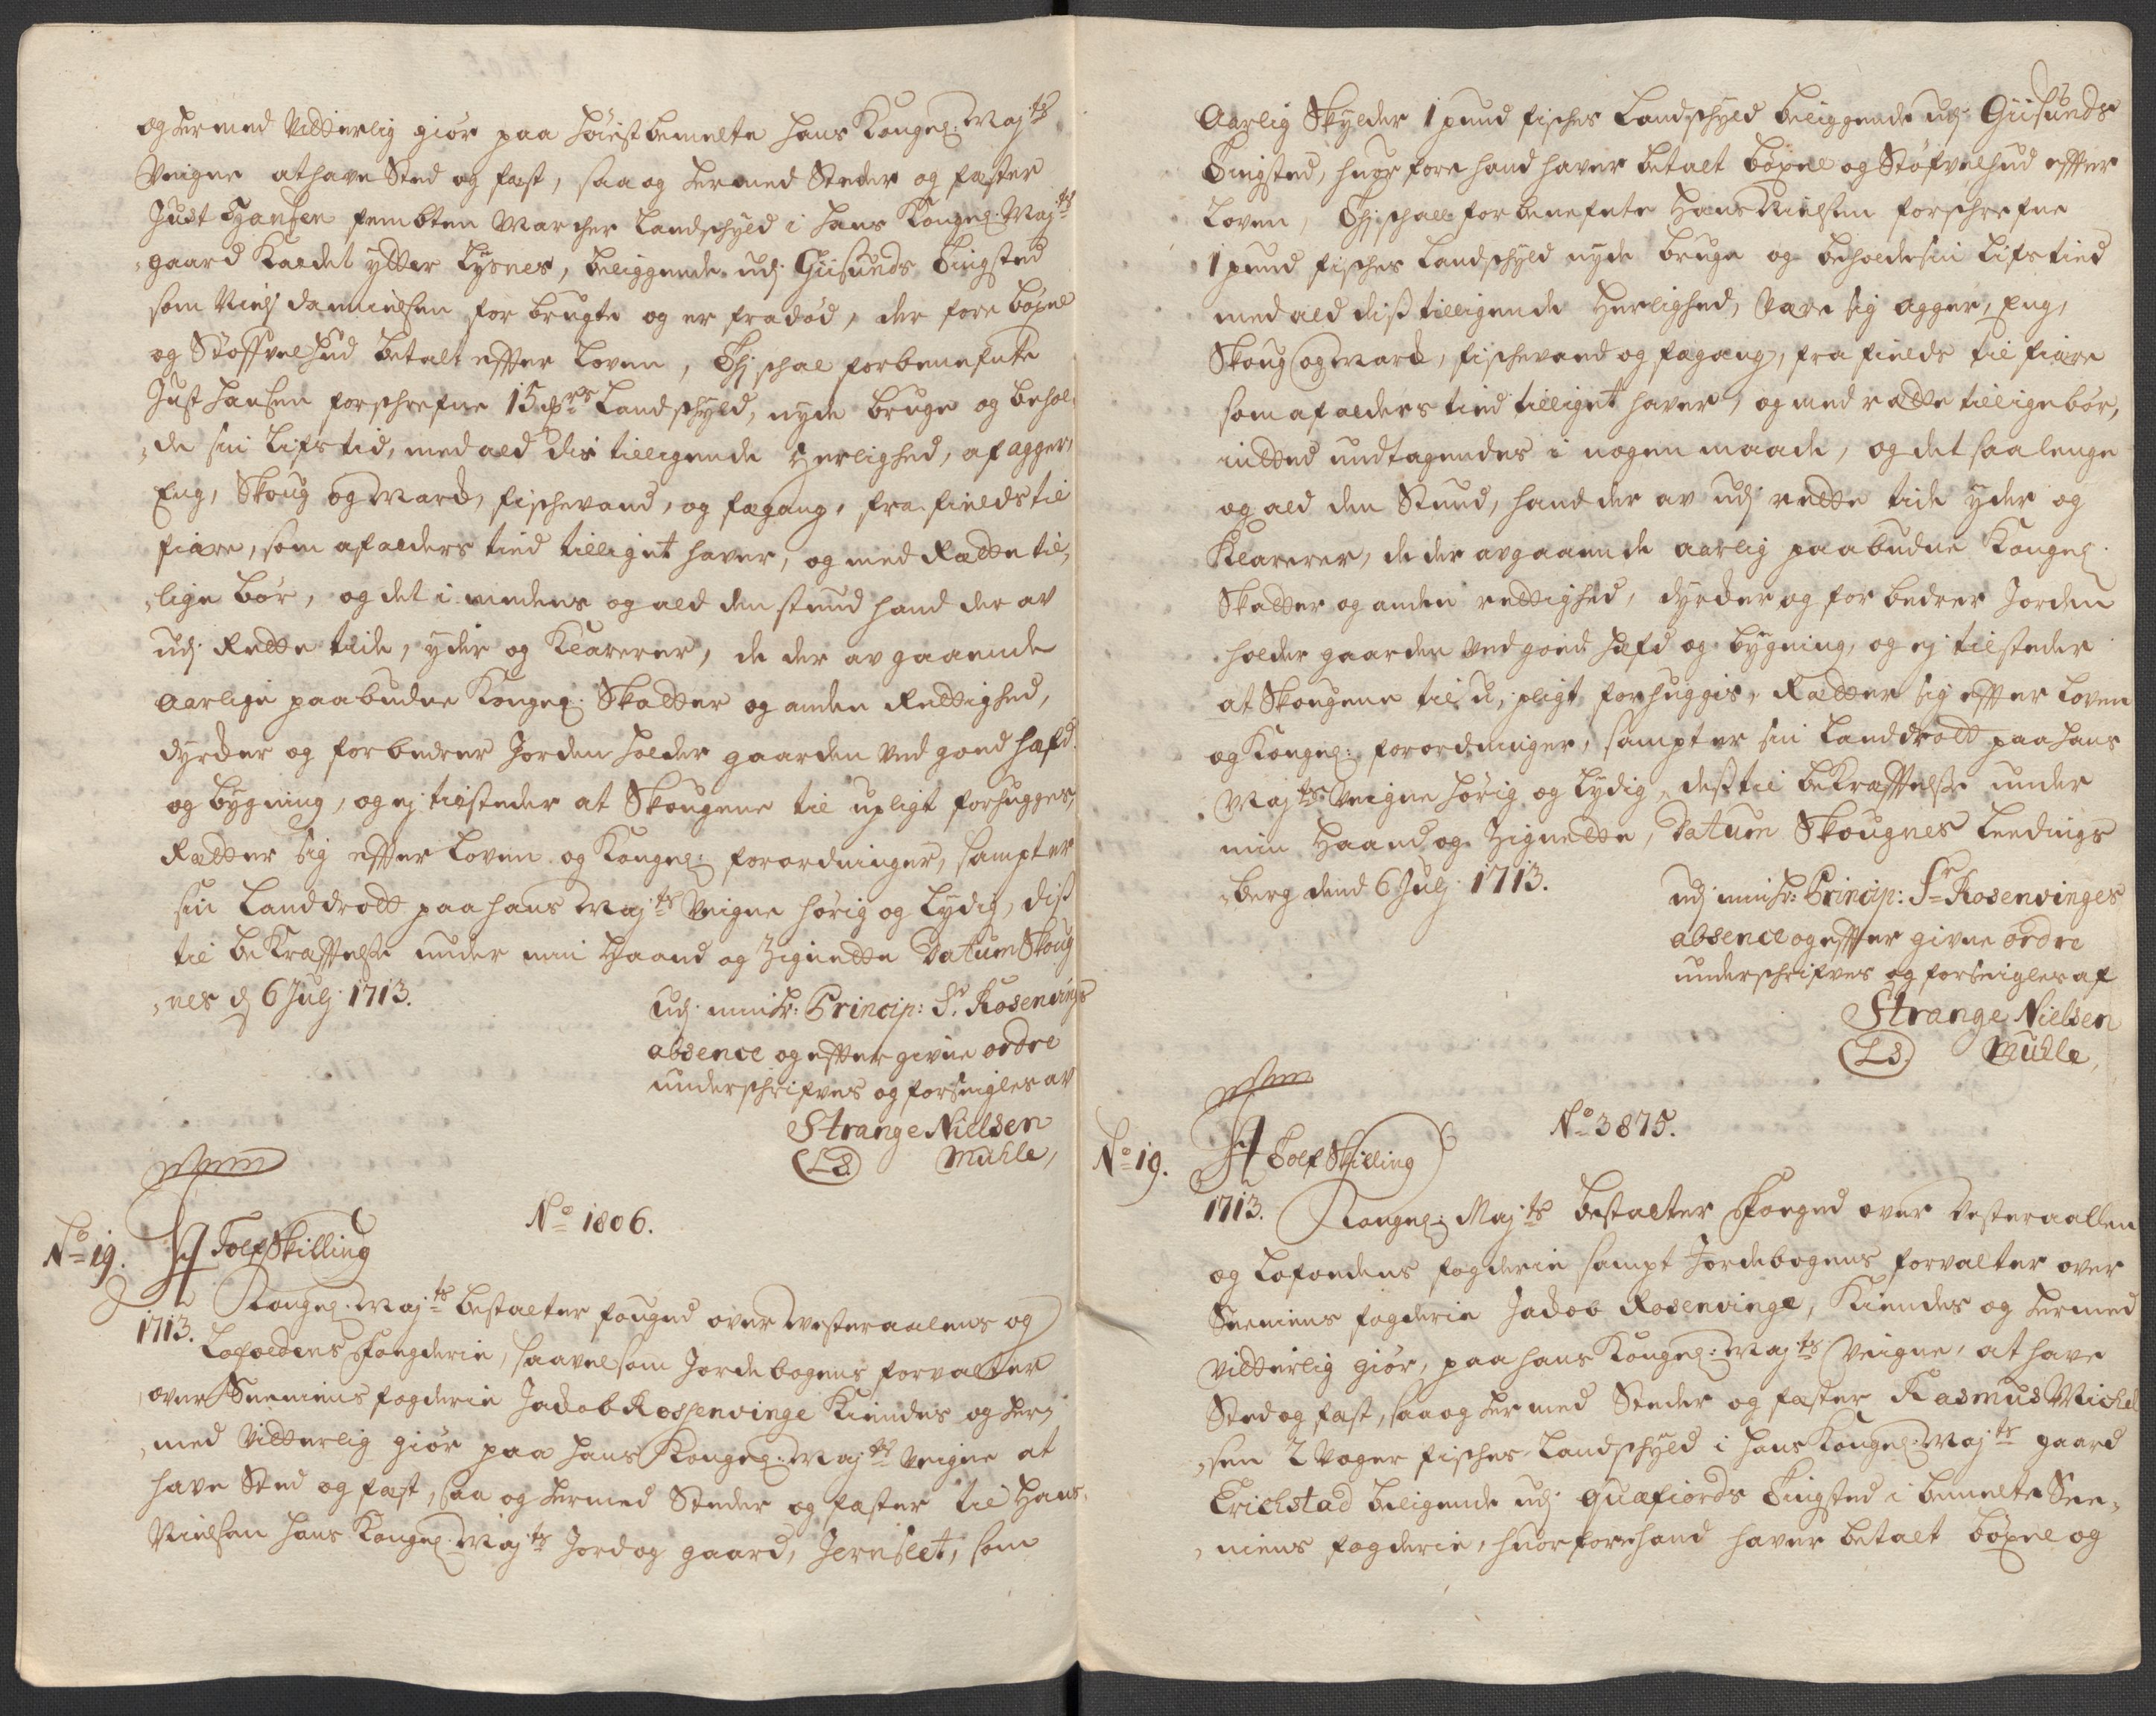 og hermed Vitterlig giör paa höiestbemelte hans Kongel: Maj:ts
Veigne at have Sted og fæst, saa og hermed Steder og fæster
Just Hansen fembten Marcher Landschyld i hans Kongel: Maj:ts
gaard Kaldet ytter Lysnes, beliggende udj Giisunds Tingsted
som Niels Danielsen for brugte og er fradöd, der fore böxel
og Stöffvelhud betalt effter Loven, Thj schal forbenefnte
Just Hansen forschrefne 15 mrs Landschyld, nyde bruge og behol-
de sin Lifs tid, med ald dis tilligende Herlighed, af agger,
Eng, Skoug og Marck, fischevand, og fægang, fra fields til
fiære, som af alders tied tilliget haver, og med Rætte til-
lige bör, og det i mindens og ald den stund hand der av
udj Rætte tide, yder og Klarerer, de der avgaaende
Aarlige paabudne Kongel: Skatter og anden Rettighed,
dyrcker og forbedrer Jorden holder gaarden ved goed hæfd
og bygning, og ej tilsteder at Skougene til upligt forhugges,
Retter sig effter Loven og Kongel: forordninger, sampt er
sin Landdrott paa hans Maj:ts Veigne hörig og Lydig, diss
til bekræfftelse under min Haand og Zignette Datum Skoug
nes d 6 Julj 1713.
Udj min Hr: Princip: Sr. Rosenvings
absence og effter givne ordre
underschrifves og forseigles av
Strange Nielsen
(LS) Muhle,
No 19. No 1806.
Tolf Skilling
1713. Kongel: Maj:ts bestalter fouged over Westeraalens og
Lofoddens Fougderie, saavel som Jordebogens forvalter
over Seeniens fogderie Jacob Rossenvinge Kiendes og her-
med Vitterlig giör paa hans Kongel: Maj:ts Veigne at
have Sted og fæst, saa og hermed Steder og fæster til Hans
Nielsen hans Kongel: Maj:ts Jord og gaard, Jernsletet, som
Aarlig Skylder 1 pund fisches Landschyld beliggende udj Giisunds
Tingsted, huor fore hand haver betalt böxel og Stöfvelhud effter
Loven, Thj schall forbenefnte Hans Nielsen forschrefne
1 pund fisches Landschyld nyde bruge og beholde sin Lifs tied
med ald diss tilligende Herlighed, være sig agger, Eng,
Skoug og Marck, fischevand og fægang, fra fields til fiære
som af alders tied tilliget haver, og med rette tillige bör,
intted undtagendes i nogen maade, og det saa lenge
og ald den Stund, hand der av udj rette tide yder og
Klarerer, de der avgaaende aarlig paabudne Kongel:
Skatter og anden rettighed, dyrcker og forbedrer Jorden
holder gaarden ved goed hæfd og bygning, og ej tilsteder
at Skougene til u-pligt forhuggis, Retter sig effter Loven
og Kongel: forordninger, sampt er sin Landdrott paa hans
Maj:ts Veigne hörig og Lydig, dess til bekræfftelse under
min Haand og Zignette, Datum Skougnes Leedings
berg dend 6 Julj 1713.
udj min Hr: Princip: Sr Rosenvinges
absence og effter givne ordre
underschrifves og forseigles af
Strange Nielsen
(LS) Muhle,
No 3875.
No 19. Tolf Skilling
1713. Kongel: Maj:ts bestalter Foeged over Vesteraallen
og Lofoedens fogderie sampt Jordebogens forvalter over
Seeniens fogderie Jacob Rosenvinge, Kiendes og hermed
vitterlig giör, paa hans Kongel: Maj:ts Veigne, at have
Sted og fæst, saa og hermed Steder og fæster Rasmus Michel
sen 2 Voger fisches Landschyld i hans Kongel: Maj:ts gaard
Erichstad beligende udj Quæfiords Tingsted i bemelte See-
niens fogderie, huor fore hand haver betalt böxel og